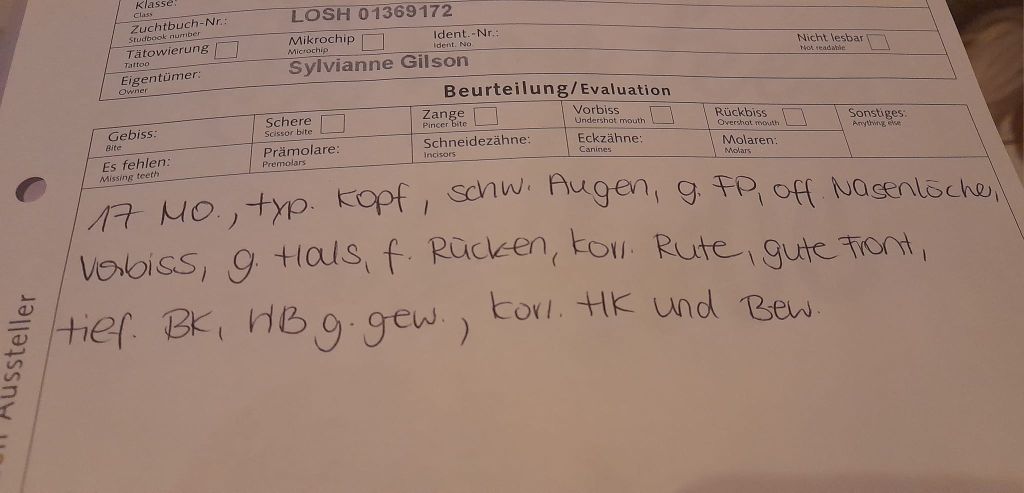 Klasse:
Class
Zuchtbuch-Nr.: LOSH 01369172
Studbook number
Tätowierung Mikrochip Ident.-Nr.: Nicht lesbar
Tattoo Microchip Ident. No. Not readable
Eigentümer: Sylvianne Gilson
Owner
Beurteilung/Evaluation
Gebiss: Schere Zange Vorbiss Rückbiss Sonstiges:
Bite Scissor bite Pincer bite Undershot mouth Overshot mouth Anything else
Es fehlen: Prämolare: Schneidezähne: Eckzähne: Molaren:
Missing teeth Premolars Incisors Canines Molars
17 MO., typ. Kopf, schw. Augen, g. FP, off. Nasenlöcher,
Vorbiss, g. Hals, f. Rücken, korr. Rute, gute Front,
tief. BK, HB g. gew., korr. HK und Bew.
Aussteller